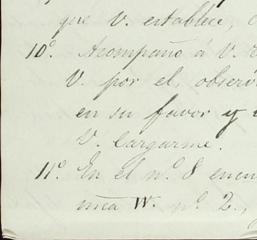 que V. establece,
10º. Acompaño á V.
V. por el, observ
en su favor y
V. cargarme.
11º. En el nº. 8 encu
mea W. nº. 2.,